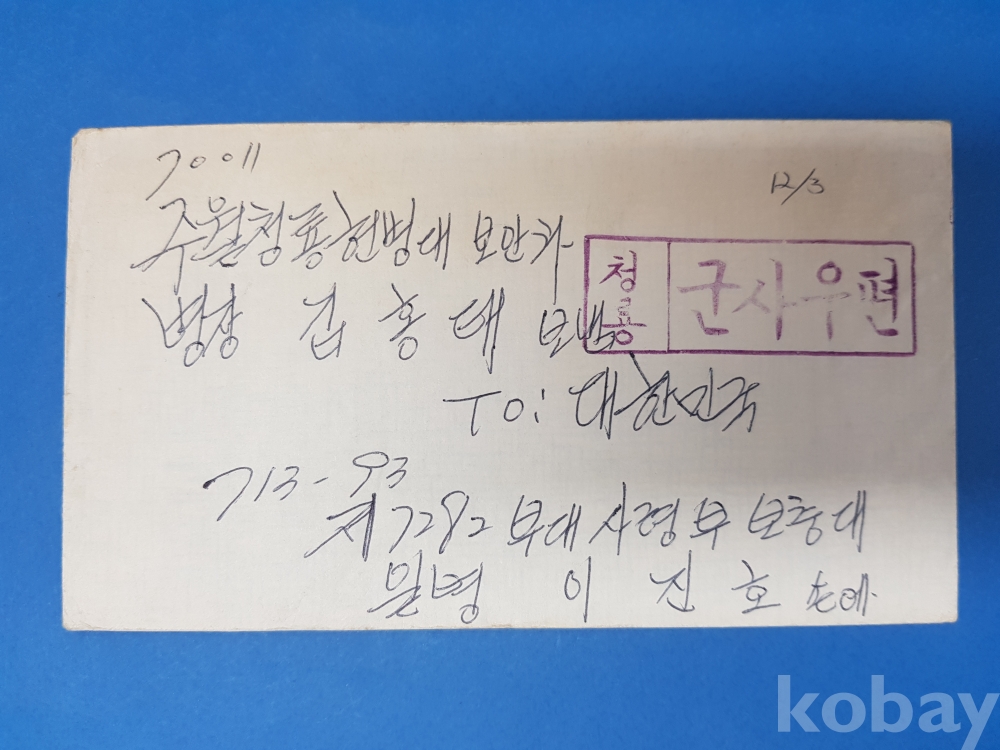 70011
12/3
주월청룡헌병대 보안과
병장 김홍태 보냄
청룡 군사우편
To: 대한민국
713-93
제7282부대사령부 보충대
일병 이진호 앞에.
kobay